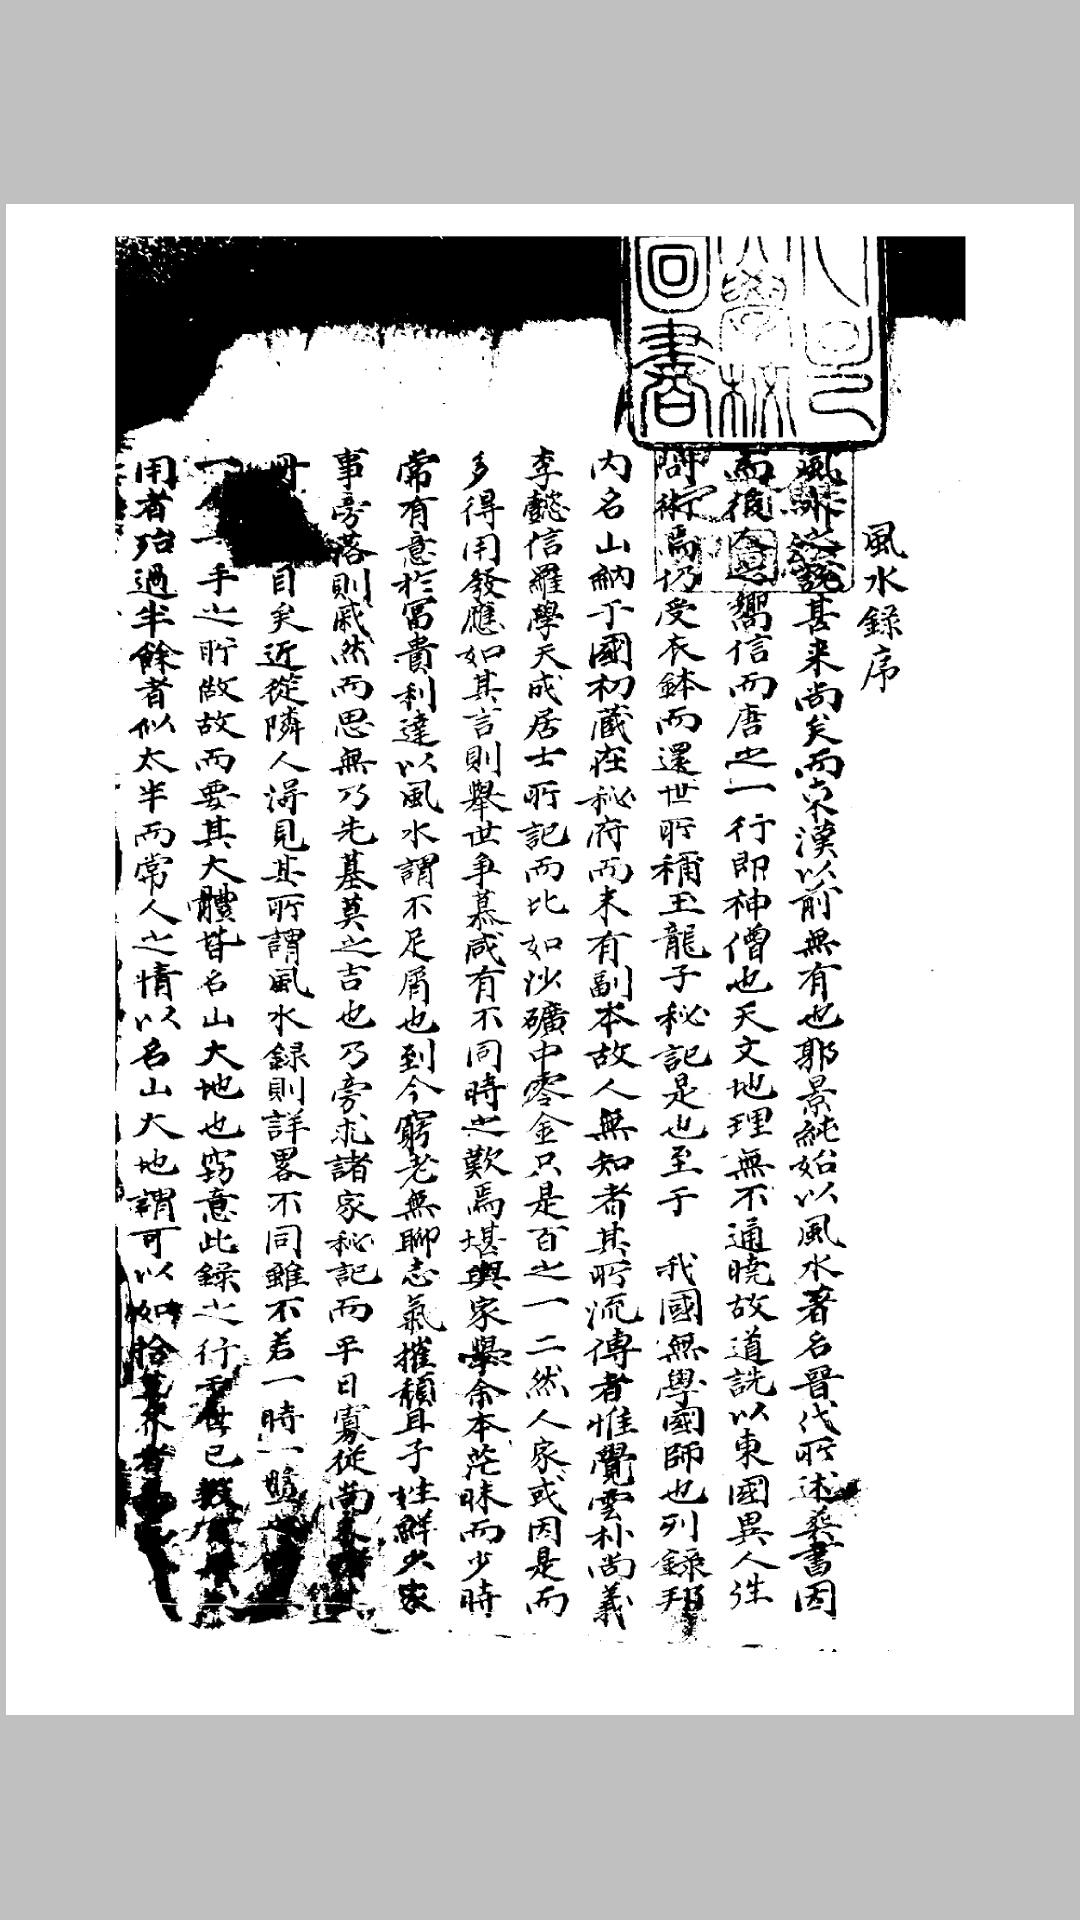 風水錄序
風水之說甚来尚矣而東漢以前無有也郭景純始以風水著名晉代所述葬書因
而後人嚮信而唐之一行即神僧也天文地理無不通曉故道詵以東國異人往
問術焉仍受衣鉢而還世所稱玉龍子秘記是也至于 我國無學國師也列錄邦
內名山納于國初蔵在秘府而未有副本故人無知者其所流傳者惟覺雲朴尚義
李懿信羅學天成居士所記而比如沙礦中零金只是百之一二然人家或因是而
多得用發應如其言則舉世争慕咸有不同時之歎焉堪輿家學余本茫昧而少時
常有意於富貴利達以風水謂不足屑也到今窮老無聊志氣摧頹且子姓鮮少家
事旁落則戚然而思無乃先墓莫之吉也乃旁求諸家秘記而平日寡從尚未
目矣近從隣人得見其所謂風水録則詳畧不同雖不若一時一
手之所做故而要其大體皆名山大地也窃意此錄之行于世已数
用者殆過半餘者似太半而常人之情以名山大地謂可以如拾芥者
圖書